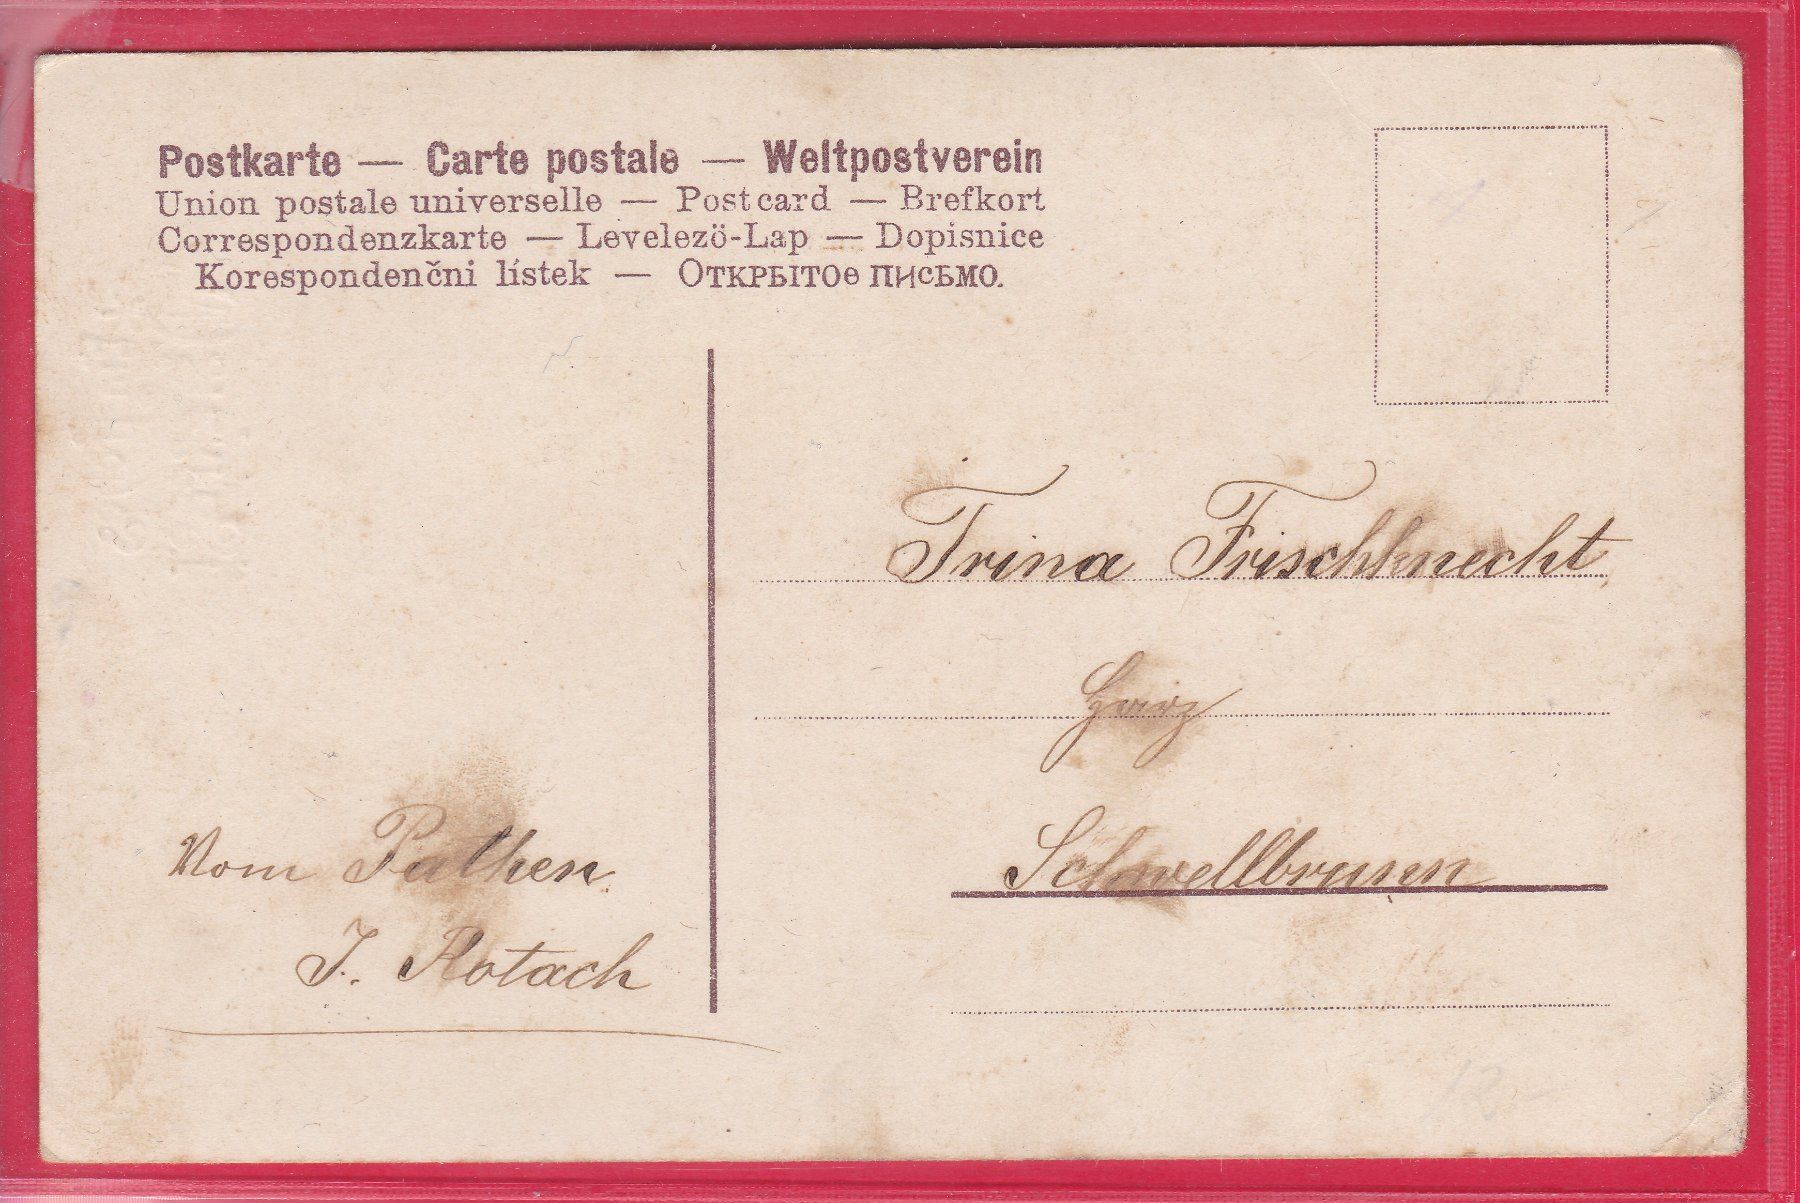 Postkarte — Carte postale — Weltpostverein
Union postale universelle — Postcard — Brefkort
Correspondenzkarte — Levelezö-Lap — Dopisnice
Korespondenčni lístek — Открытое письмо.
Trina Frischknecht
Schwellbrunn
Vom Pathen
J. Rotach